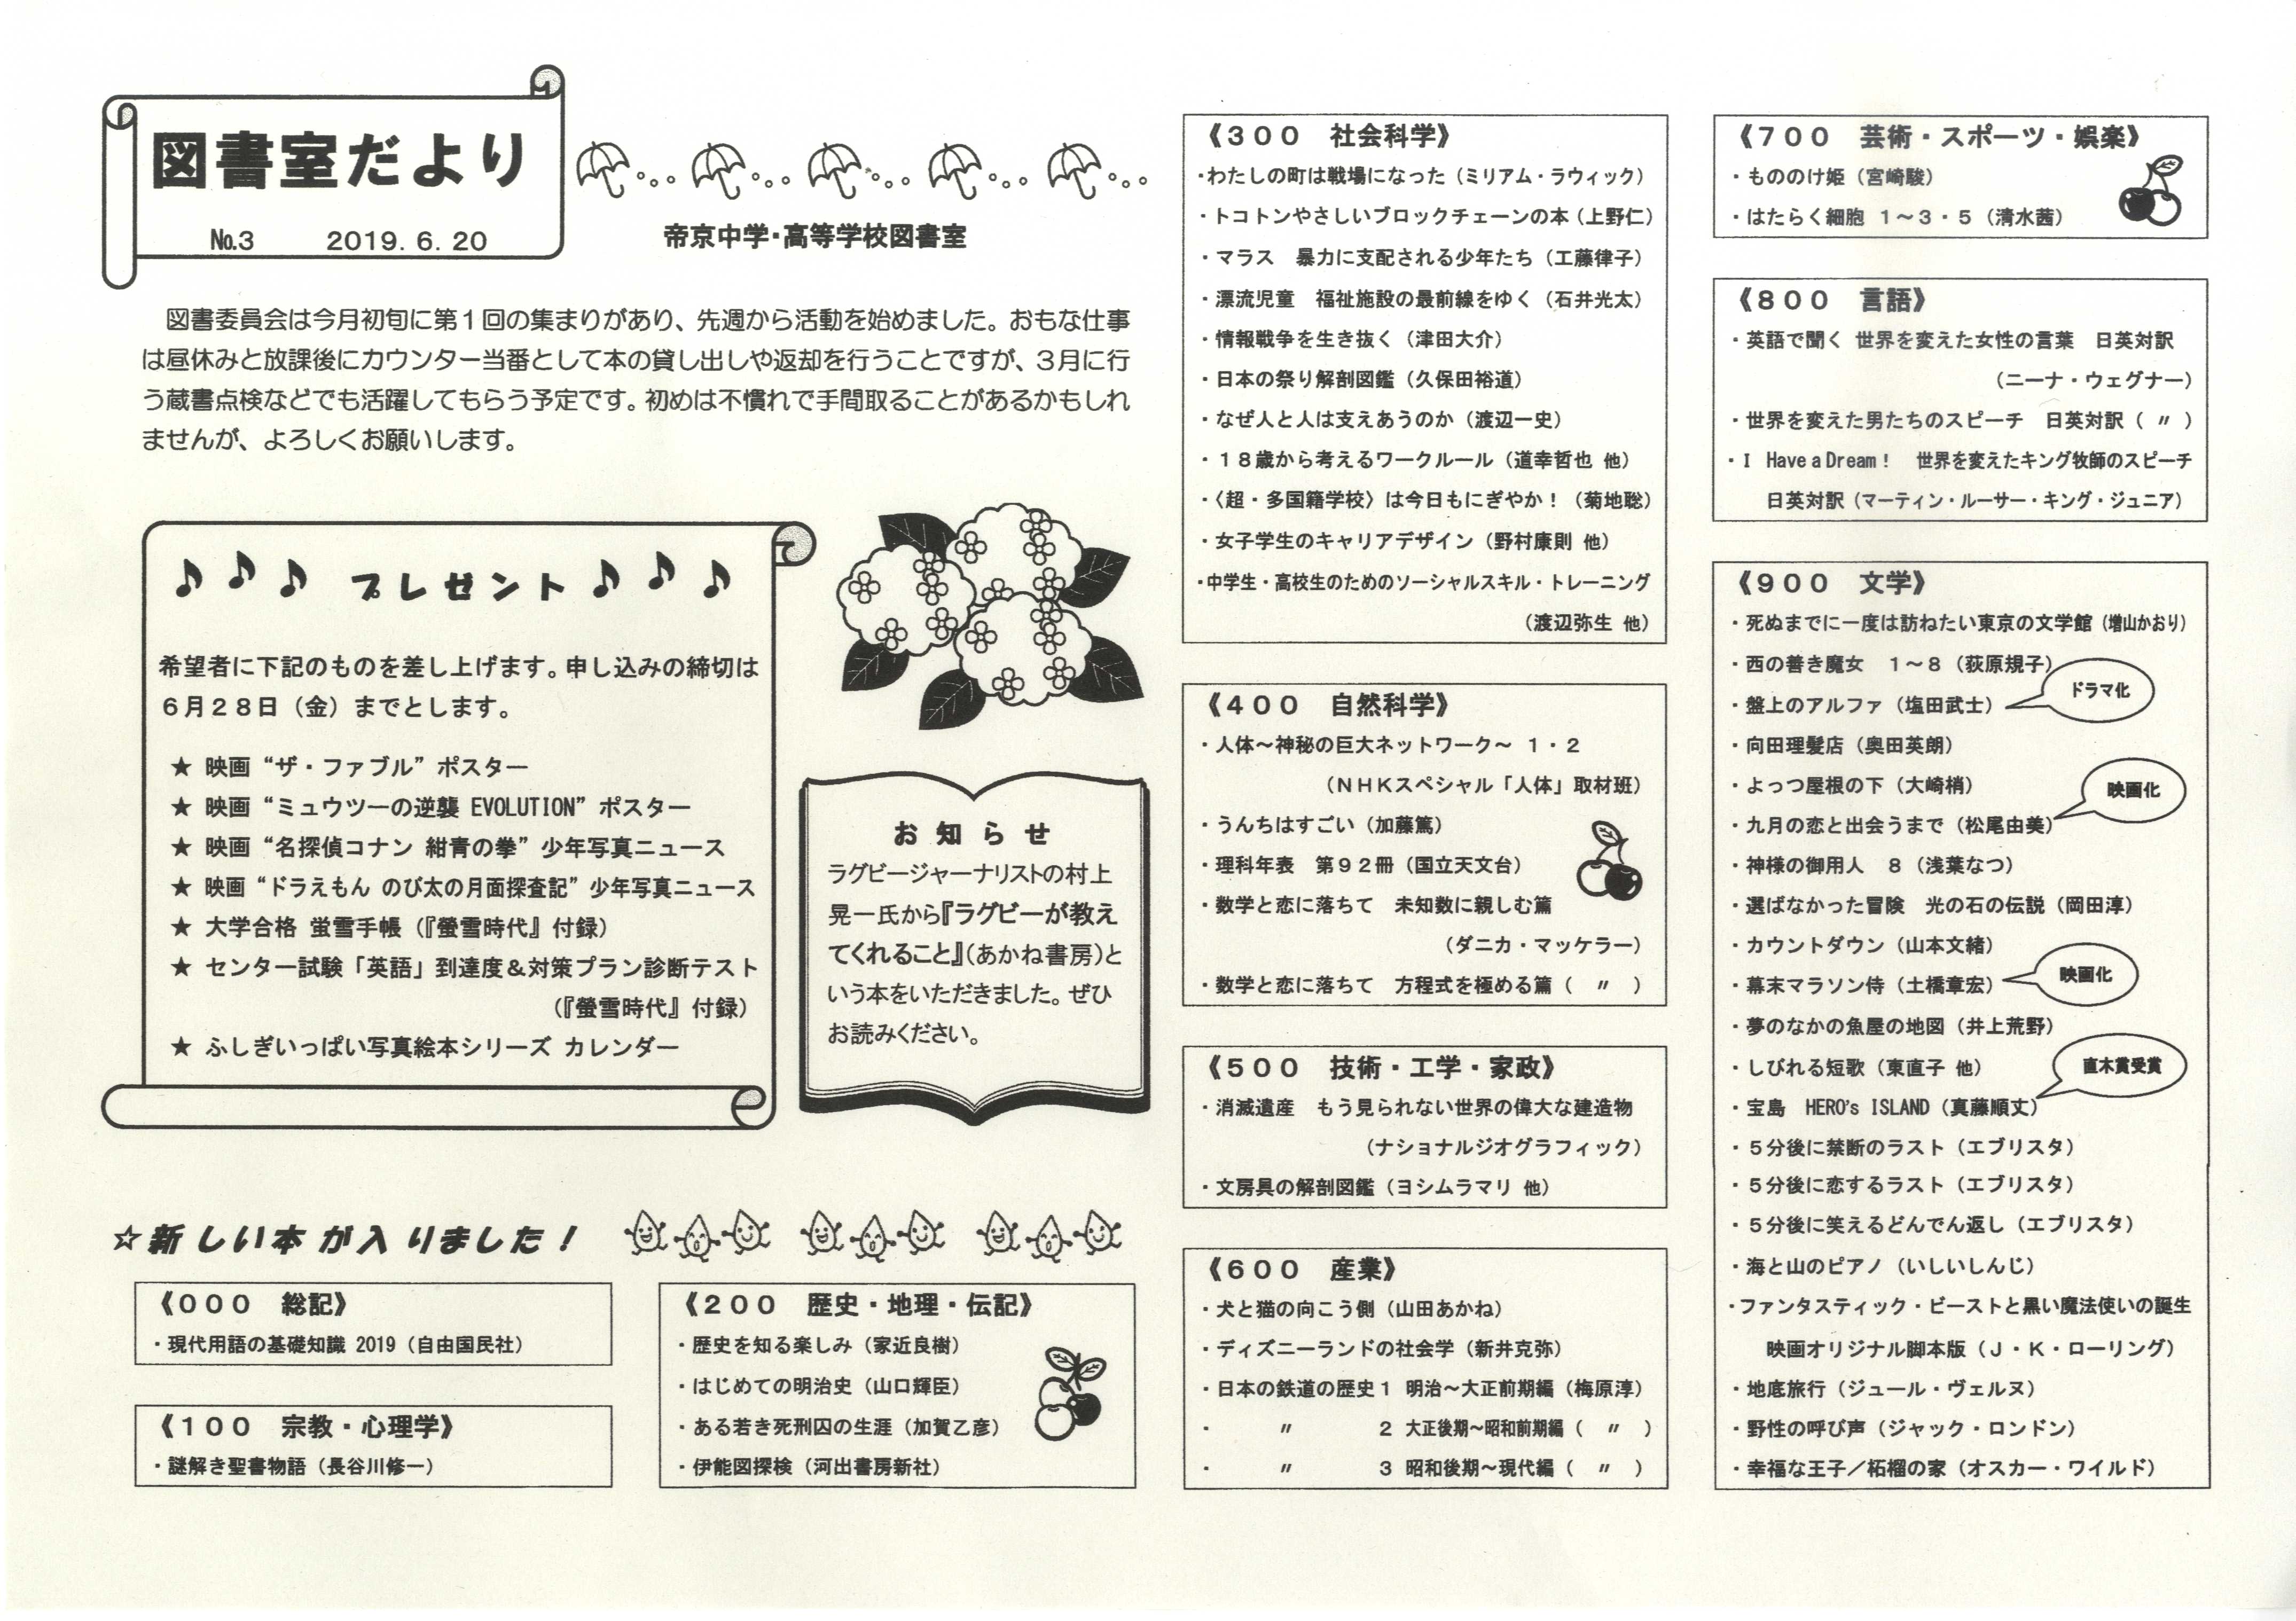 図書室だより
№3　2019.6.20
帝京中学・高等学校図書室
図書委員会は今月初旬に第１回の集まりがあり、先週から活動を始めました。おもな仕事
は昼休みと放課後にカウンター当番として本の貸し出しや返却を行うことですが、３月に行
う蔵書点検などでも活躍してもらう予定です。初めは不慣れで手間取ることがあるかもしれ
ませんが、よろしくお願いします。
♪♪♪ プレゼント♪♪♪
希望者に下記のものを差し上げます。申し込みの締切は
６月２８日（金）までとします。
★ 映画“ザ・ファブル”ポスター
★ 映画“ミュウツーの逆襲 EVOLUTION”ポスター
★ 映画“名探偵コナン 紺青の拳”少年写真ニュース
★ 映画“ドラえもん のび太の月面探査記”少年写真ニュース
★ 大学合格 蛍雪手帳（『螢雪時代』付録）
★ センター試験「英語」到達度＆対策プラン診断テスト
（『螢雪時代』付録）
★ ふしぎいっぱい写真絵本シリーズ カレンダー
お知らせ
ラグビージャーナリストの村上
晃一氏から『ラグビーが教え
てくれること』（あかね書房）と
いう本をいただきました。ぜひ
お読みください。
☆新しい本が入りました！
《０００　総記》
・現代用語の基礎知識 2019（自由国民社）
《１００　宗教・心理学》
・謎解き聖書物語（長谷川修一）
《２００　歴史・地理・伝記》
・歴史を知る楽しみ（家近良樹）
・はじめての明治史（山口輝臣）
・ある若き死刑囚の生涯（加賀乙彦）
・伊能図探検（河出書房新社）
《３００　社会科学》
・わたしの町は戦場になった（ミリアム・ラウィック）
・トコトンやさしいブロックチェーンの本（上野仁）
・マラス　暴力に支配される少年たち（工藤律子）
・漂流児童　福祉施設の最前線をゆく（石井光太）
・情報戦争を生き抜く（津田大介）
・日本の祭り解剖図鑑（久保田裕道）
・なぜ人と人は支えあうのか（渡辺一史）
・１８歳から考えるワークルール（道幸哲也 他）
・〈超・多国籍学校〉は今日もにぎやか！（菊地聡）
・女子学生のキャリアデザイン（野村康則 他）
・中学生・高校生のためのソーシャルスキル・トレーニング
（渡辺弥生 他）
《４００　自然科学》
・人体～神秘の巨大ネットワーク～ １・２
（ＮＨＫスペシャル「人体」取材班）
・うんちはすごい（加藤篤）
・理科年表　第９２冊（国立天文台）
・数学と恋に落ちて　未知数に親しむ篇
（ダニカ・マッケラー）
・数学と恋に落ちて　方程式を極める篇（　〃　）
《５００　技術・工学・家政》
・消滅遺産　もう見られない世界の偉大な建造物
（ナショナルジオグラフィック）
・文房具の解剖図鑑（ヨシムラマリ 他）
《６００　産業》
・犬と猫の向こう側（山田あかね）
・ディズニーランドの社会学（新井克弥）
・日本の鉄道の歴史１ 明治～大正前期編（梅原淳）
・　　　〃　　　　２ 大正後期～昭和前期編（　〃　）
・　　　〃　　　　３ 昭和後期～現代編（　〃　）
《７００　芸術・スポーツ・娯楽》
・もののけ姫（宮崎駿）
・はたらく細胞 １～３・５（清水茜）
《８００　言語》
・英語で聞く 世界を変えた女性の言葉　日英対訳
（ニーナ・ウェグナー）
・世界を変えた男たちのスピーチ　日英対訳（ 〃 ）
・I Have a Dream！　世界を変えたキング牧師のスピーチ
日英対訳（マーティン・ルーサー・キング・ジュニア）
《９００　文学》
・死ぬまでに一度は訪ねたい東京の文学館（増山かおり）
・西の善き魔女　１～８（荻原規子）
・盤上のアルファ（塩田武士）　ドラマ化
・向田理髪店（奥田英朗）
・よっつ屋根の下（大崎梢）
・九月の恋と出会うまで（松尾由美）　映画化
・神様の御用人　８（浅葉なつ）
・選ばなかった冒険　光の石の伝説（岡田淳）
・カウントダウン（山本文緒）
・幕末マラソン侍（土橋章宏）　映画化
・夢のなかの魚屋の地図（井上荒野）
・しびれる短歌（東直子 他）
・宝島　HERO's ISLAND（真藤順丈）　直木賞受賞
・５分後に禁断のラスト（エブリスタ）
・５分後に恋するラスト（エブリスタ）
・５分後に笑えるどんでん返し（エブリスタ）
・海と山のピアノ（いしいしんじ）
・ファンタスティック・ビーストと黒い魔法使いの誕生
映画オリジナル脚本版（Ｊ・Ｋ・ローリング）
・地底旅行（ジュール・ヴェルヌ）
・野性の呼び声（ジャック・ロンドン）
・幸福な王子／柘榴の家（オスカー・ワイルド）